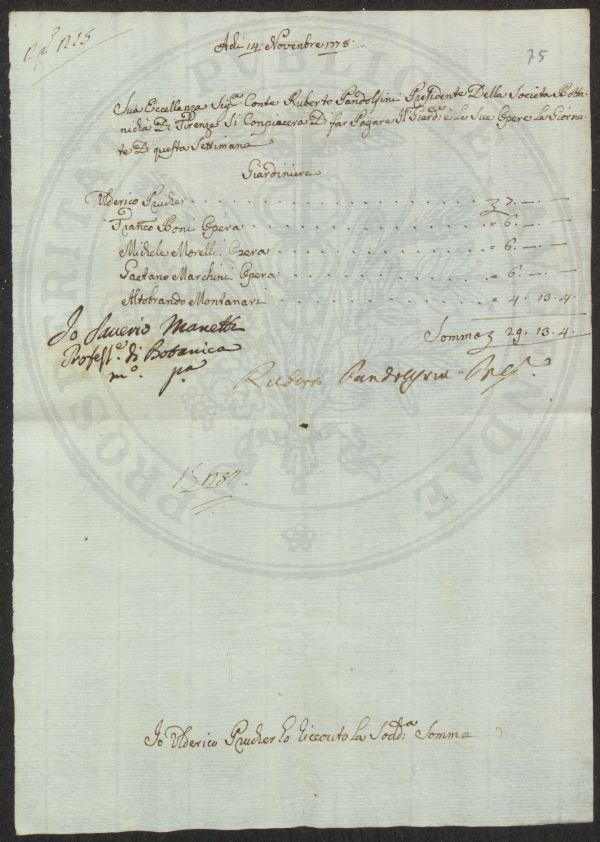 75
Adi 14 Novenbre 1778.
Sua Eccellenza Sig.e Conte Ruberto Pandolfini Presidente Della Societa Botta
nicha Di Firenze Si Conpiacera Di far Pagare Il Giard.e e Le Sue Opere Le Giorna
te Di questa Settimana
Giardiniere
Ulderico Prucher . . . 7. — . —
Franc.o Boni Opera . . . = 6. — . —
Michele Morelli Opera . . . = 6. — . —
Gaetano Marchini Opera . . . = 6. — . —
Altobrando Montanari . . . = 4. 13. 4.
Somma 29. 13. 4.
Io Saverio Manetti
Profess.e di Botanica
m.o p.a
Ruberto Pandolfini Pres.
Io Ulderico Prucher ho riceuto La Sodd.a Somma